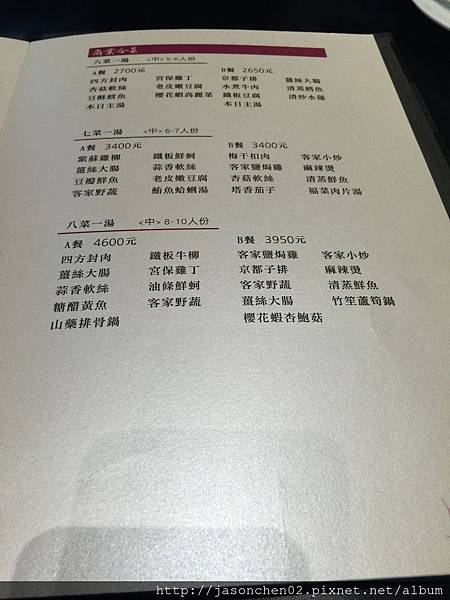 商業合菜
六菜一湯 <中> 5-6人份
A餐 2700元 B餐 2650元
四方封肉 宮保雞丁 京都子排 薑絲大腸
杏菇軟絲 老皮嫩豆腐 水煮牛肉 清蒸鱈魚
豆酥鱈魚 櫻花蝦高麗菜 鐵板豆腐 清炒水蓮
本日主湯 本日主湯
七菜一湯 <中> 6-7人份
A餐 3400元 B餐 3400元
紫蘇雞柳 鐵板鮮蚵 梅干扣肉 客家小炒
薑絲大腸 蒜香軟絲 客家鹽焗雞 麻辣燙
豆瓣鮮魚 老皮嫩豆腐 杏菇軟絲 清蒸鮮魚
客家野蔬 鮑魚蛤蜊湯 塔香茄子 福菜肉片湯
八菜一湯 <中> 8-10人份
A餐 4600元 B餐 3950元
四方封肉 鐵板牛柳 客家鹽焗雞 客家小炒
薑絲大腸 宮保雞丁 京都子排 麻辣燙
蒜香軟絲 油條鮮蚵 客家野蔬 清蒸鮮魚
糖醋黃魚 客家野蔬 薑絲大腸 竹笙蘆筍鍋
山藥排骨鍋 櫻花蝦杏鮑菇
http://jasonchen02.pixnet.net/album